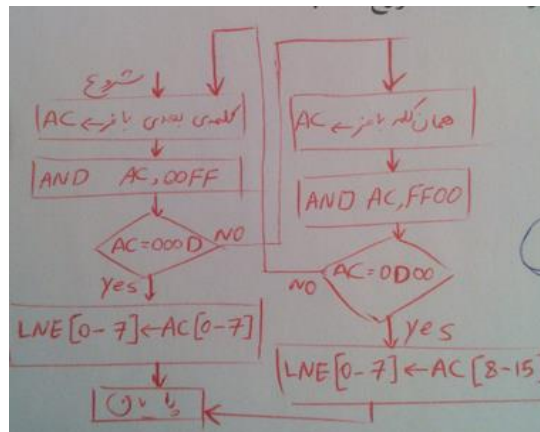 شروع
AC ← کلمه‌ی بعدی بافر
AND AC,00FF
AC=000D
NO
Yes
LNE[0-7]←AC[0-7]
پایان
AC ← همان کلمه بافر
AND AC,FF00
AC=0D00
NO
Yes
LNE[0-7]←AC[8-15]